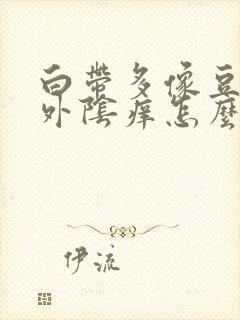 白帶多像豆
外陰痒怎麼
伊流